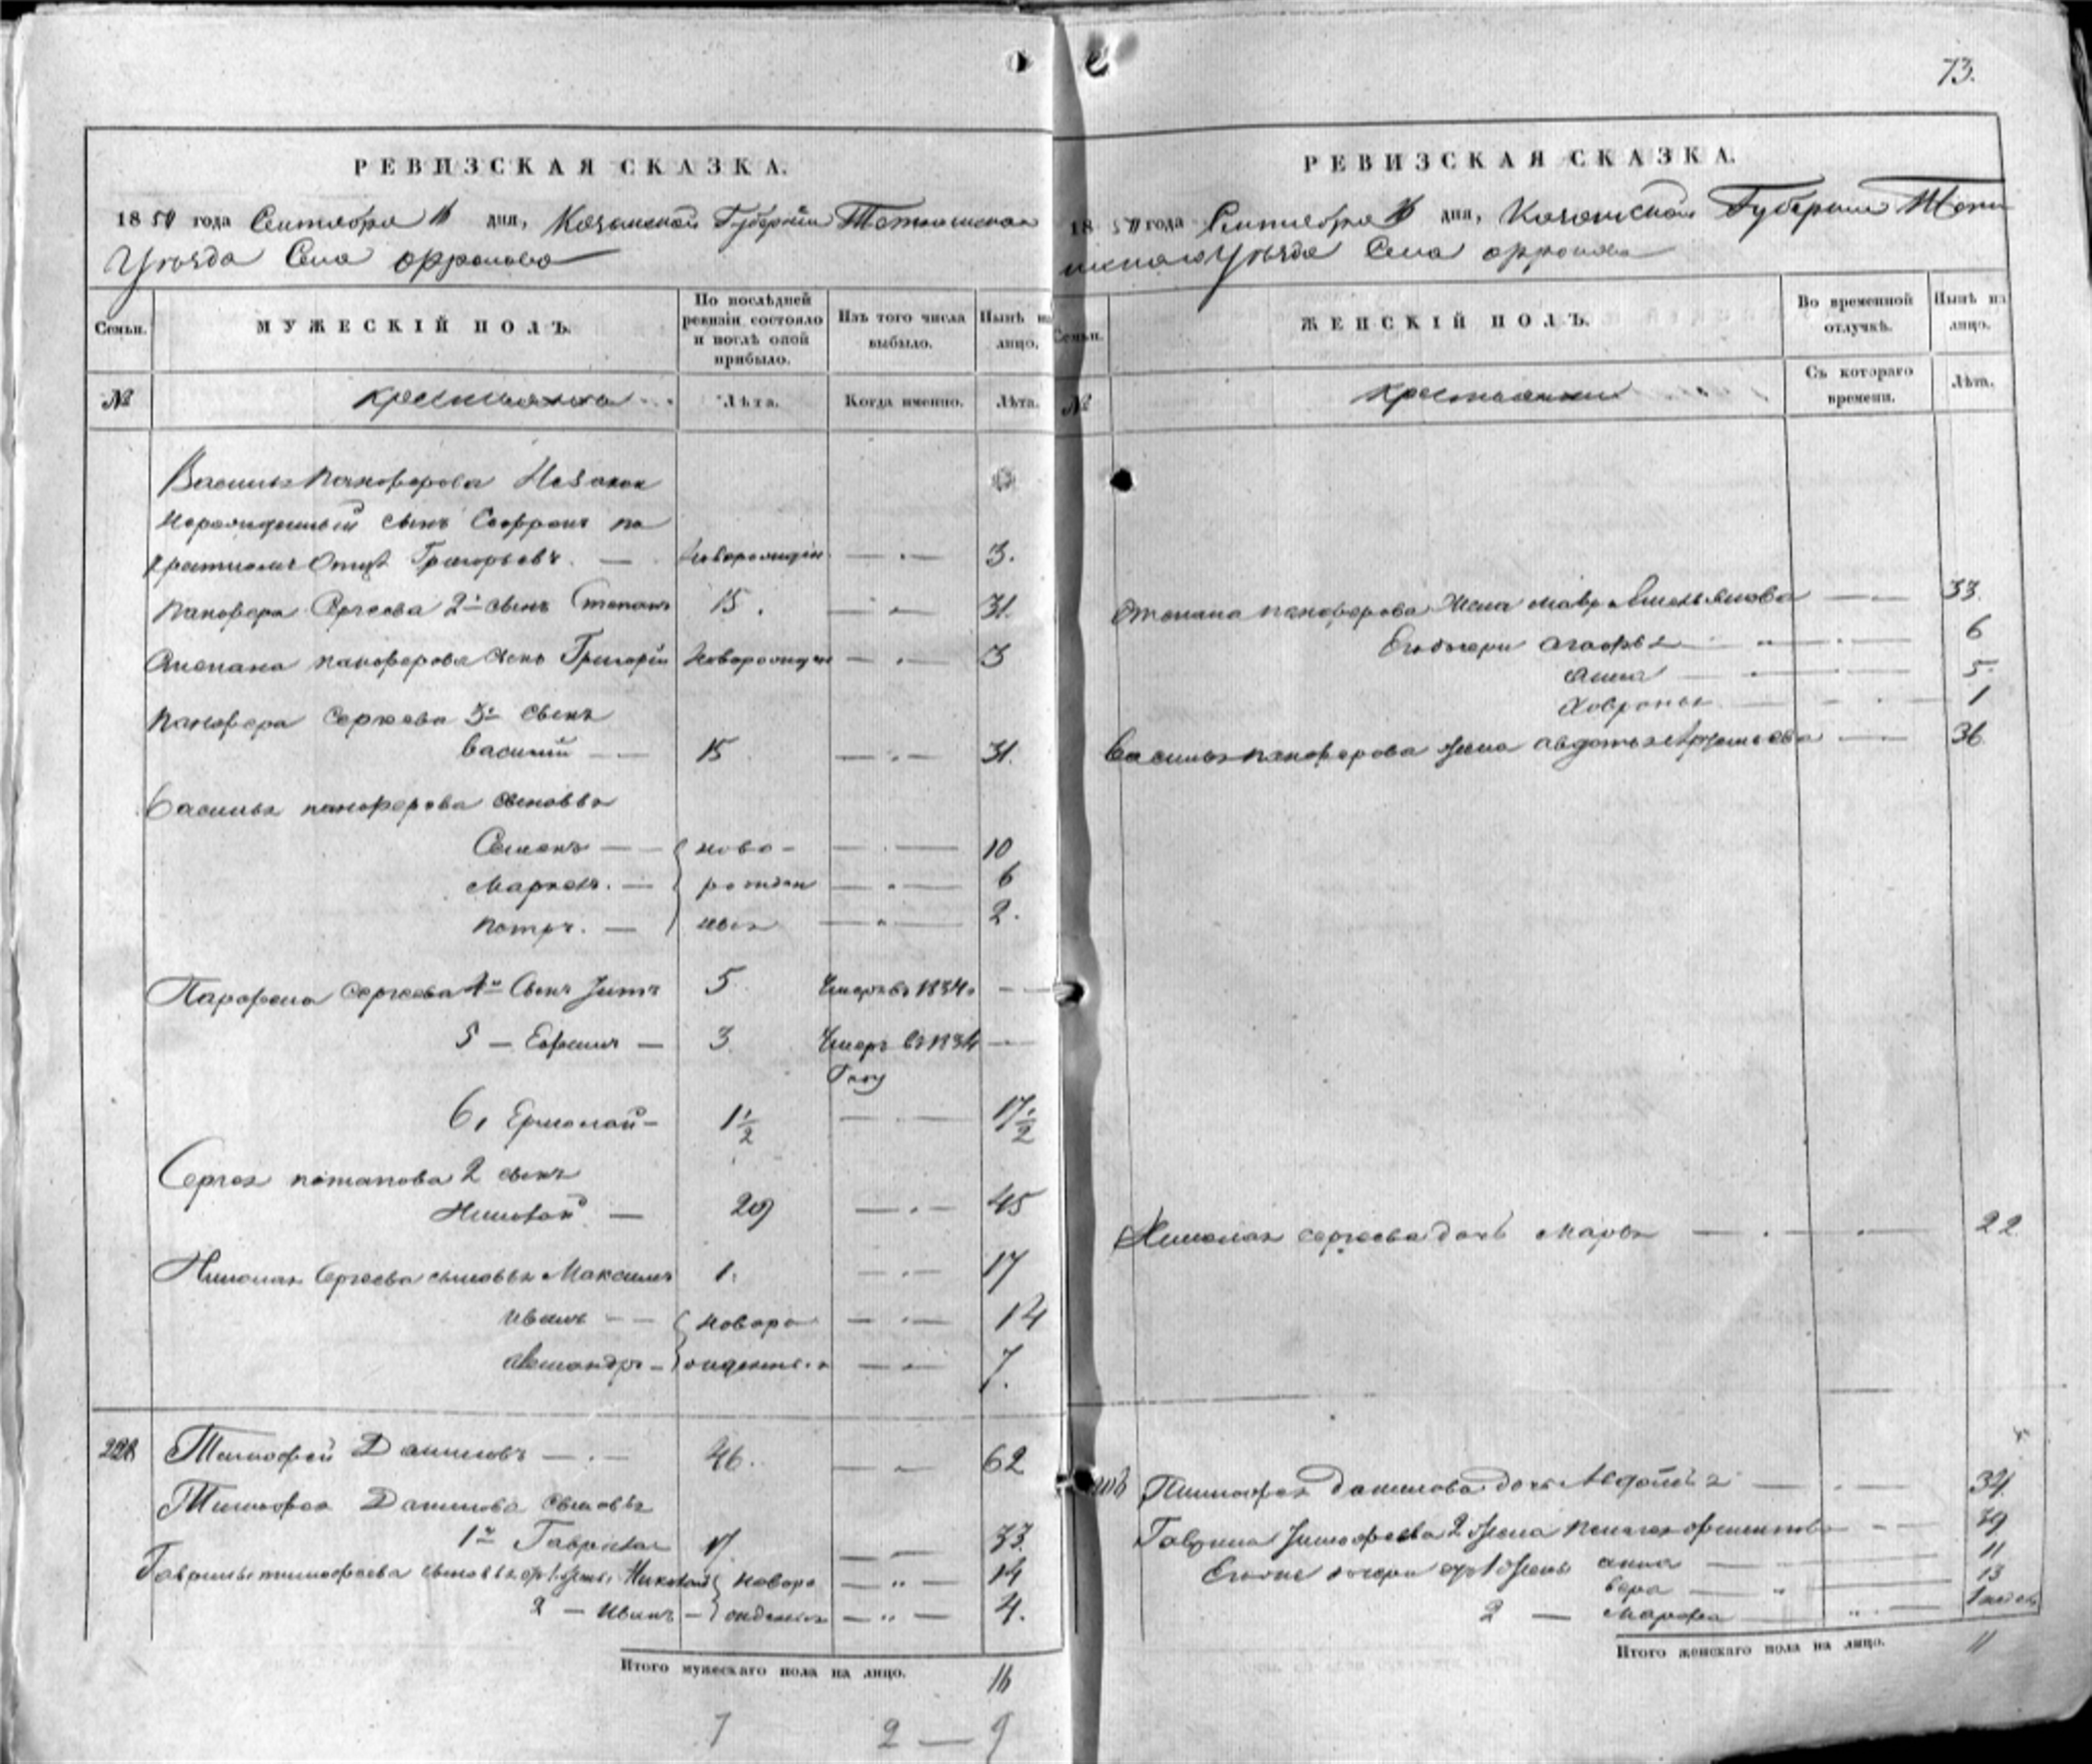 73.
РЕВИЗСКАЯ СКАЗКА.
1850 года Сентября 16 дня, Казанской Губернiи Тетюшскаго
Уѣзда Села
МУЖЕСКІЙ ПОЛЪ.
Семьи.
По послѣдней ревизіи состояло и послѣ оной прибыло.
Изъ того числа выбыло.
Нынѣ на лицо.
№
Лѣта.
Когда именно.
Лѣта.
Василья Панферова Незакон
норожденный сынъ Софронъ по
Отцѣ Григорьевъ. — новорожден — 3.
Панфера Сергеева 2й сынъ Степанъ 15. — 31.
Степана панферова сынъ Григорiй Новорожден — 3
Панфера Сергеева 3й сынъ
Василий — 15 — 31.
Василья панферова сыновья
Семенъ — ново- — 10
Маркелъ. — рожден — 6
Петръ. — ныя — 2.
Парфена Сергеева 4й Сынъ Титъ 5 Умеръ въ 1834. —
5 — Ефимъ — 3. Умеръ въ 1834 —
Году
6, Ермолай — 1 1/2 — 17 1/2
Сергея потапова 2 сынъ
Николай — 29 — 45
Николая Сергеева сыновья Максимъ 1. — 17
Иванъ — новоро — 14
Александръ — жденныя — 7.
228 Тимофей Даниловъ — 46. — 62
Тимофея Данилова сыновья
1й Гаврила 17. — 33.
Гаврилы тимофеева сыновья от 1 жены Николай новоро — 14
2 — Иванъ — жденныя — 4.
Итого мужескаго пола на лицо. 16
7 2 — 9
РЕВИЗСКАЯ СКАЗКА.
1850 года Сентября 16 дня, Казанской Губернiи Тетю
шскаго Уѣзда Села
Семьи.
ЖЕНСКІЙ ПОЛЪ.
Во временной отлучкѣ.
Нынѣ на лицо.
№
Крестьянки
Съ котораго времени.
Лѣта.
Степана панферова Жена Мавра Емельянова — 33.
Его дочери Агафья — 6
Анна — 5.
Ховронья — 1
Василья панферова жена Авдотья Артемьева — 36.
Николая сергеева дочь Марья — 22.
Тимофея Данилова дочь Авдотья — 34.
Гаврила Тимофеева 2 жена Пелагея Филипова — 39
Его же дочери от 1 жены Анна — 11
Вера — 13
2 — Марфа — 1 месяц
Итого женскаго пола на лицо. 11